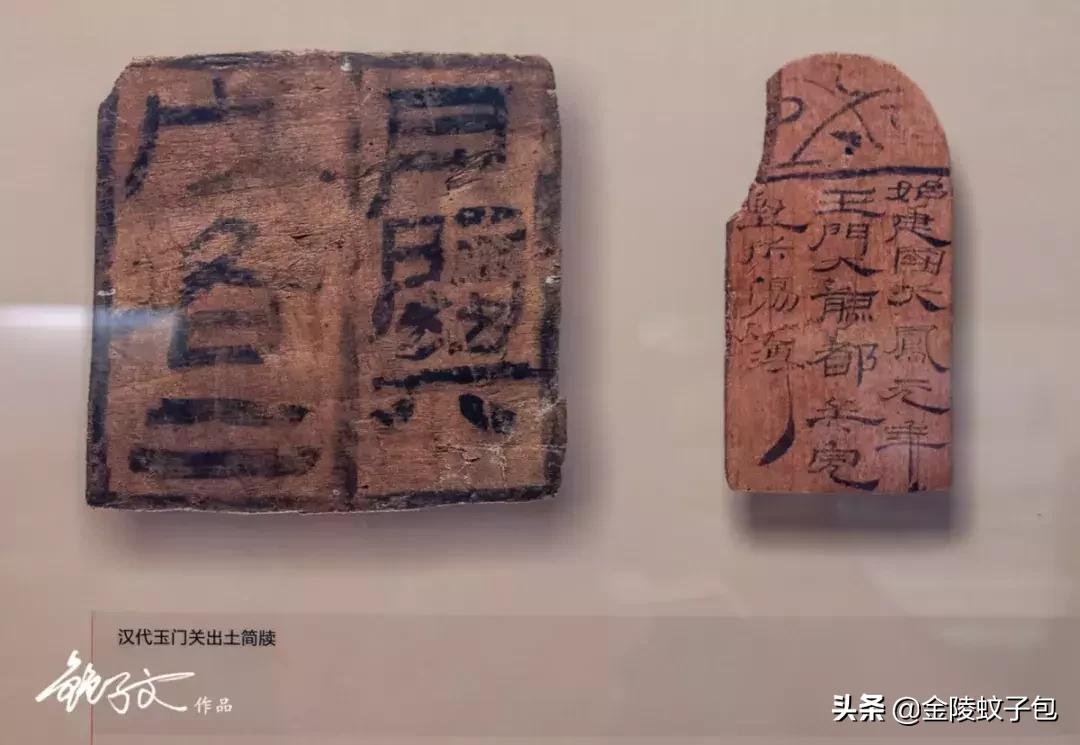 始建國天鳳元年
玉門大煎都兵完
堅折傷簿
汉代玉门关出土简牍
鲍子文 作品
头条 @金陵蚊子包